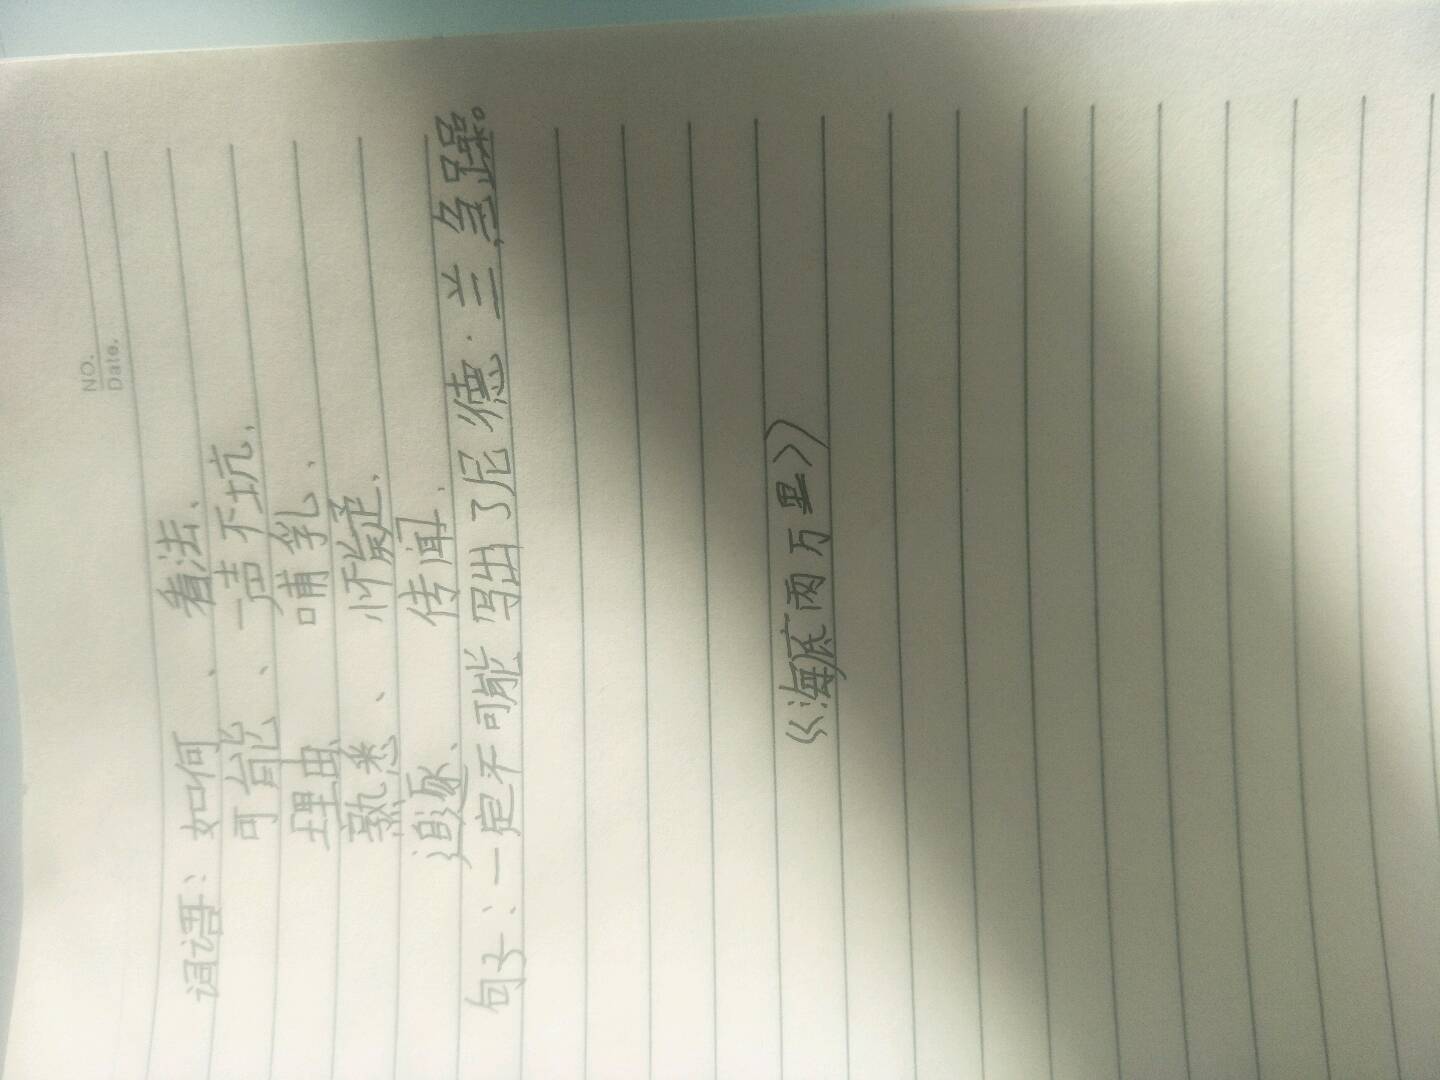 NO.
Date.
词语：如何、看法、
可能、一声不坑、
理由、哺乳、
熟悉、怀疑、
追逐、传闻、
句子：一定不可能写出了尼德·兰急躁。
《海底两万里》